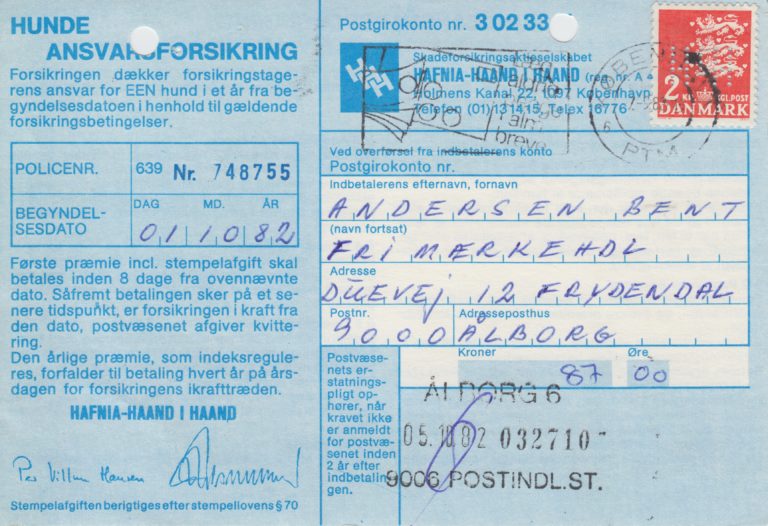 HUNDE
ANSVARSFORSIKRING
Forsikringen dækker forsikringstage-
rens ansvar for EEN hund i et år fra be-
gyndelsesdatoen i henhold til gældende
forsikringsbetingelser.
POLICENR. 639 Nr. 748755
BEGYNDEL-
SESDATO
DAG MD. ÅR
01 10 82
Første præmie incl. stempelafgift skal
betales inden 8 dage fra ovennævnte
dato. Såfremt betalingen sker på et se-
nere tidspunkt, er forsikringen i kraft fra
den dato, postvæsenet afgiver kvitte-
ring.
Den årlige præmie, som indeksregule-
res, forfalder til betaling hvert år på års-
dagen for forsikringens ikrafttræden.
HAFNIA-HAAND I HAAND
Per Villum Hansen
Stempelafgiften berigtiges efter stempellovens § 70
Postgirokonto nr. 3 02 33
Skadeforsikringsaktieselskabet
HAFNIA-HAAND I HAAND (reg. nr. A 4
Holmens Kanal 22, 1097 København
Telefon (01) 131415, Telex 16776
2 KR. DANMARK
Ved overførsel fra indbetalerens konto
Postgirokonto nr.
Indbetalerens efternavn, fornavn
ANDERSEN BENT
(navn fortsat)
FRIMÆRKEHDL
Adresse
DUEVEJ 12 FRYDENDAL
Postnr. Adresseposthus
9000 ÅLBORG
Kroner Øre
87 00
Postvæse-
nets er-
statnings-
pligt op-
hører, når
kravet ikke
er anmeldt
for postvæ-
senet inden
2 år efter
indbetalin-
gen.
ÅLBORG 6
05.10.82 032710-
9006 POSTINDL.ST.